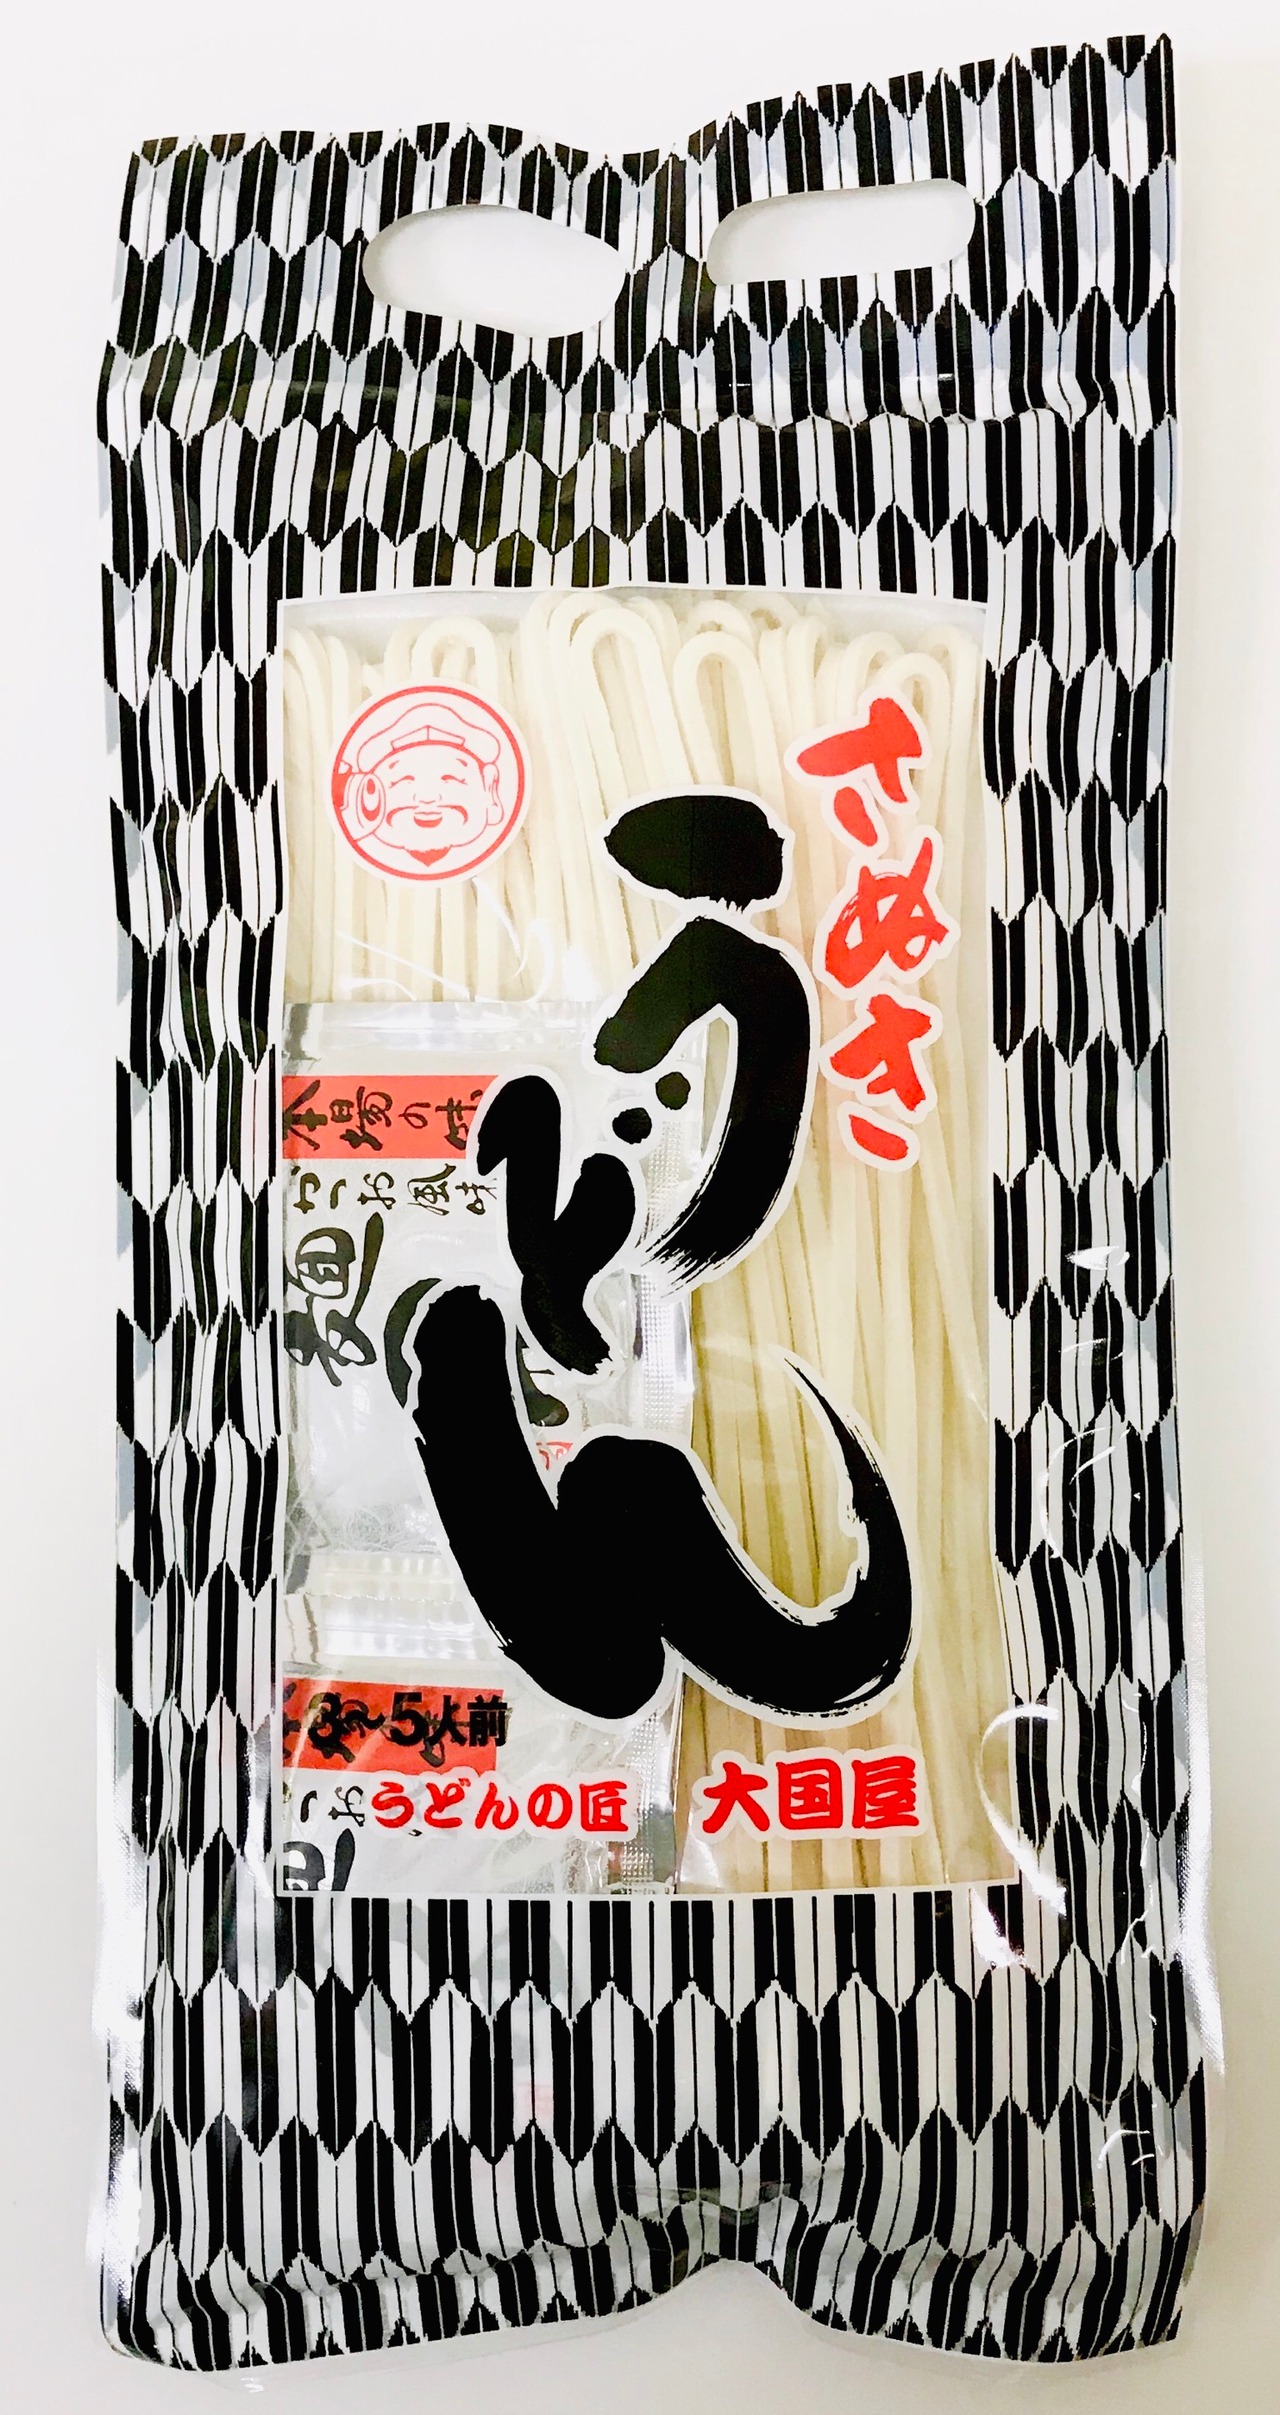 さぬき
うどん
本場の味
かつお風味
麺つゆ
5人前
うどんの匠
大国屋